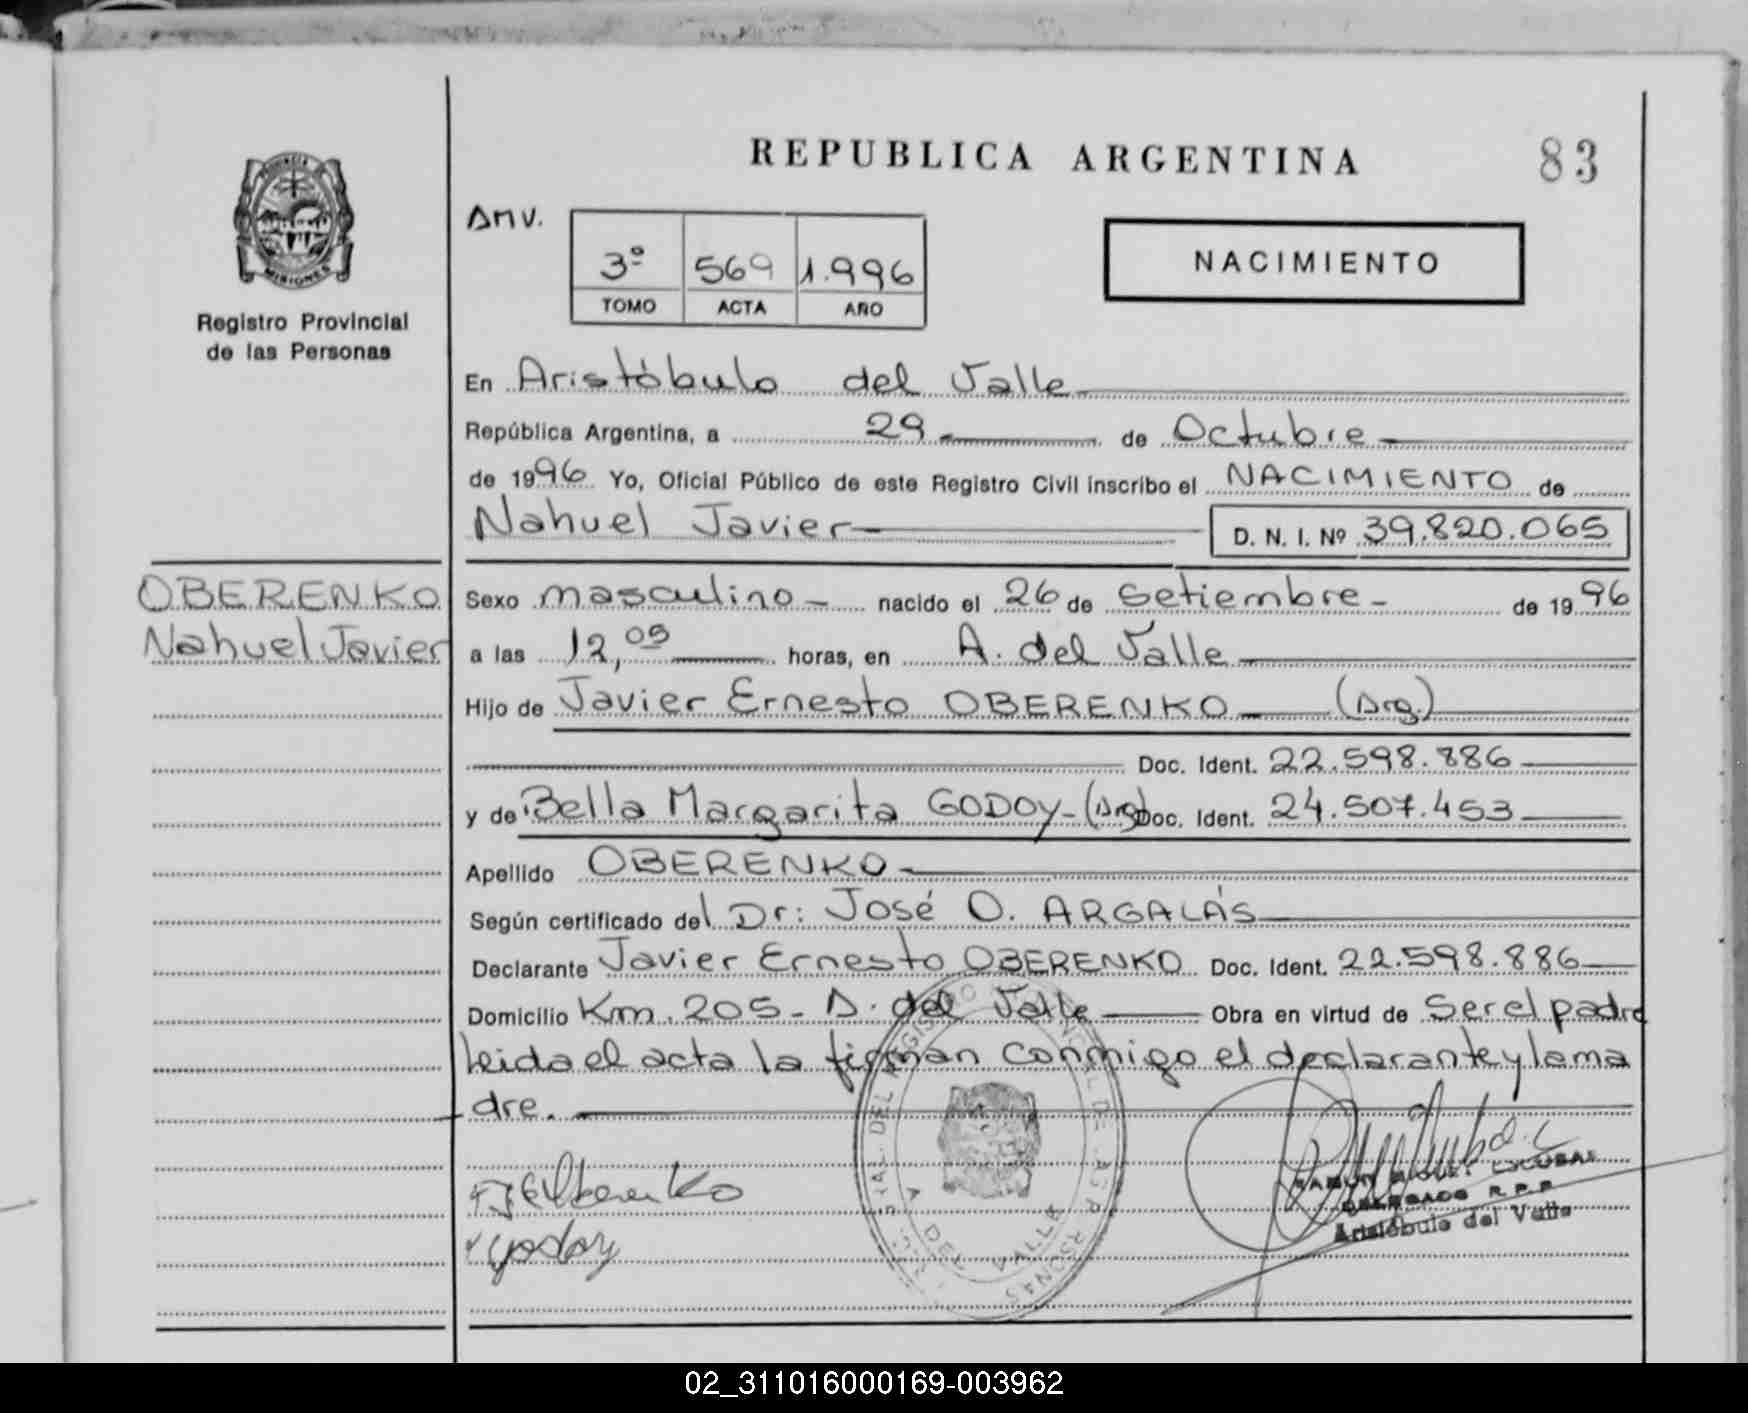 REPUBLICA ARGENTINA
83
PROVINCIA
MISIONES
Registro Provincial
de las Personas
AMV.
3º 569 1.996
TOMO ACTA AÑO
NACIMIENTO
En Aristóbulo del Valle
República Argentina, a 29 de Octubre
de 1996 Yo, Oficial Público de este Registro Civil inscribo el NACIMIENTO de
Nahuel Javier D. N. I. Nº 39.820.065
OBERENKO
Nahuel Javier
Sexo masculino - nacido el 26 de Setiembre - de 1996
a las 12,05 horas, en A. del Valle
Hijo de Javier Ernesto OBERENKO (Arg.)
Doc. Ident. 22.598.886
y de Bella Margarita GODOY - (Arg) Doc. Ident. 24.507.453
Apellido OBERENKO
Según certificado del Dr: José O. ARGALÁS
Declarante Javier Ernesto OBERENKO Doc. Ident. 22.598.886
Domicilio Km. 205 - A. del Valle Obra en virtud de Ser el padre
leida el acta la firman conmigo el declarante y la ma
dre.
Oberenko
Godoy
DELEGADO R.P.P.
Aristóbulo del Valle
02_311016000169-003962